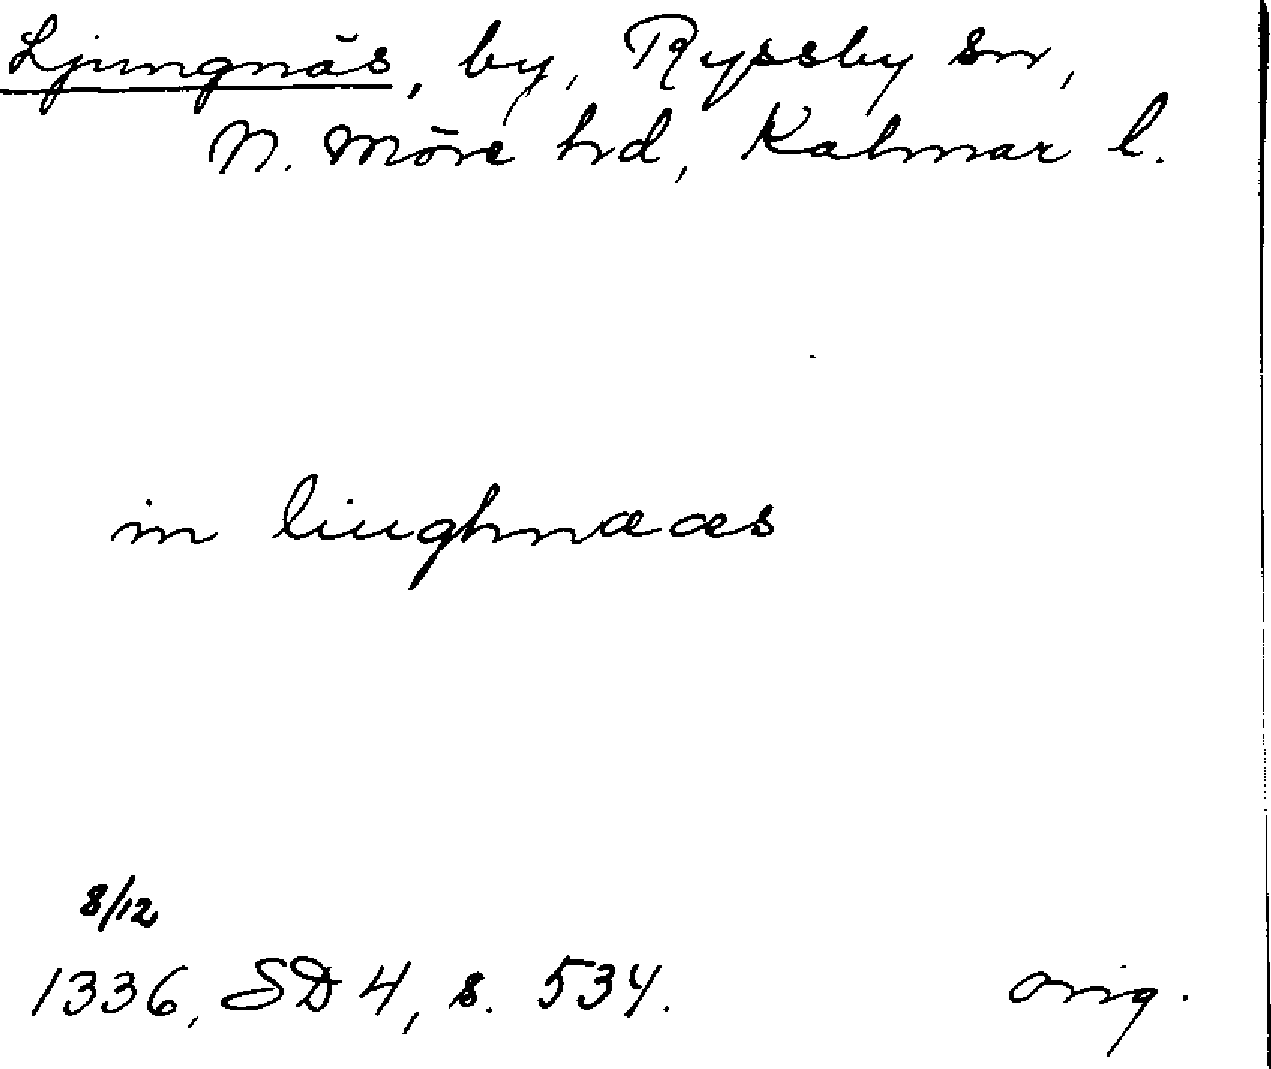 Ljungnäs, by, Ryssby sn,
N. Möre hd, Kalmar l.
in liughnææs
8/12
1336, SD 4, s. 534. orig.